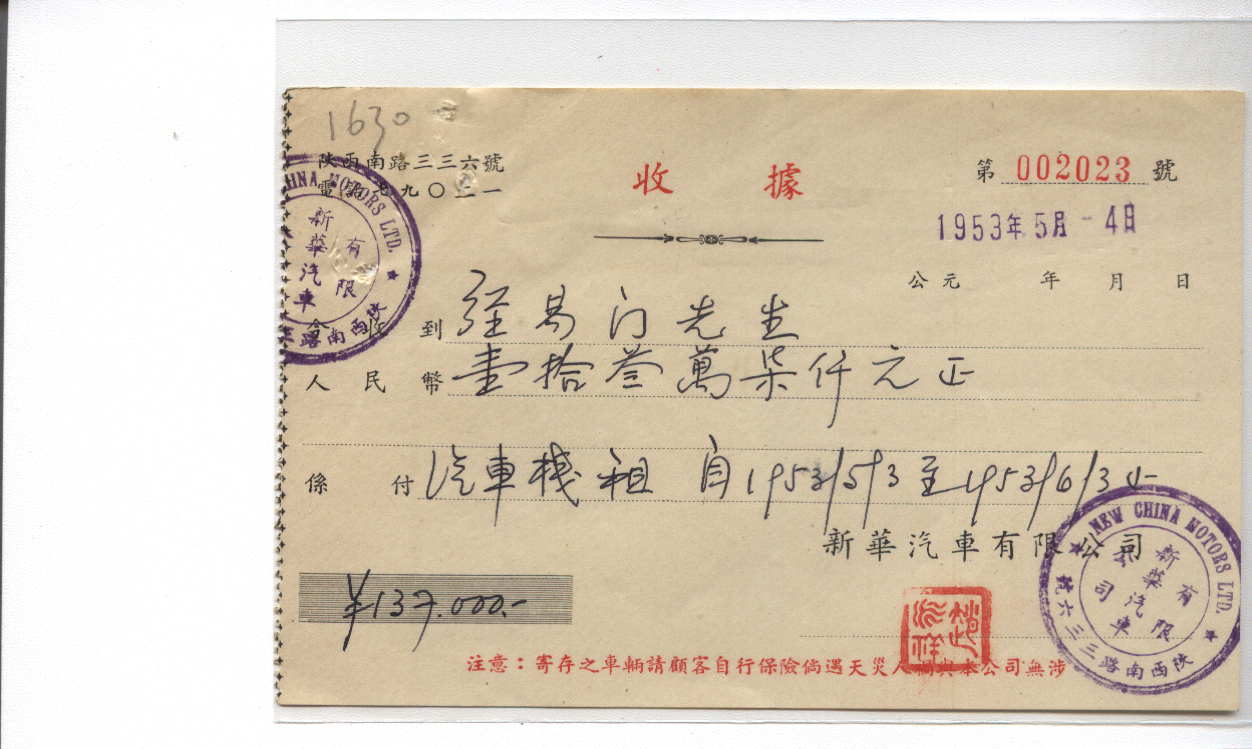 1630
陝西南路三三六號
電話七九〇二一
收據
第 002023 號
1953年5月-4日
公元 年 月 日
今收到 經易门先生
人民幣 壹拾叁萬柒仟元正
係付 汽車棧租 自1953/5/3至1953/6/3止
新華汽車有限公司
¥137.000.-
注意：寄存之車輛請顧客自行保險倘遇天災人禍與本公司無涉
CHINA MOTORS LTD.
新華汽車有限
陝西南路三
NEW CHINA MOTORS LTD.
新華汽車有限公司
陝西南路三三六號